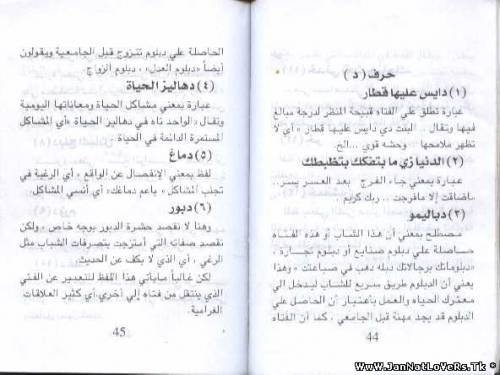 حرف ( د )
(١) دايس عليها قطار
عبارة تطلق علي الفتاه قبيحة المنظر لدرجة مبالغ
فيها وتقال .. البنت دي دايس عليها قطار » أي لا
تظهر ملامحها وحشه قوي ...الخ.
(٢) الدنيا زي ما بتعكك بتظبطلك
عبارة بمعني جاء الفرج بعد العسر يسر..
ماضاقت إلا مافرجت .. ربك كريم .
(٣) دباليمو
مصطلح بمعني أن هذا الشاب أو هذه الفتاه
حاصلة علي دبلوم صنايع أو دبلوم تجارة ،
«دبلوماتك برجالاتك دبله دهب في صباعتك » وهذا
يعني أن الدبلوم طريق سريع للشباب ليدخل الي
معترك الحياه والعمل بأعتبار أن الحاصل علي
الدبلوم قد يجد مهنة قبل الجامعي ، كما أن الفتاه
44
الحاصلة علي دبلوم تتزوج قبل الجامعية ويقولون
أيضاً «دبلوم العدل» ، دبلوم الزواج.
(٤) دهاليز الحياة
عبارة بمعني مشاكل الحياة ومعاناتها اليومية
وتقال» الواحد تاه في دهاليز الحياة »أي المشاكل
المستمرة الدائمة في الحياة .
(٥) دماغ
لفظ بمعني الإنفصال عن الواقع ، أي الرغبة في
تجنب المشاكل» ياعم دماغك» أي أنسي المشاكل.
(٦) دبور
وهنا لا نقصد حشرة الدبور بوجه خاص ، ولكن
نقصد صفاته التي أمتزجت بتصرفات الشباب مثل
الرغي ، أي الذي لا يكف عن الحديث.
لكن غالباً مايأتي هذا اللفظ للتعبير عن الفتي
الذي ينتقل من فتاه إلي أخري أي كثير العلاقات
الغرامية.
45
WwW.JanNatLoVeRs.Tk *